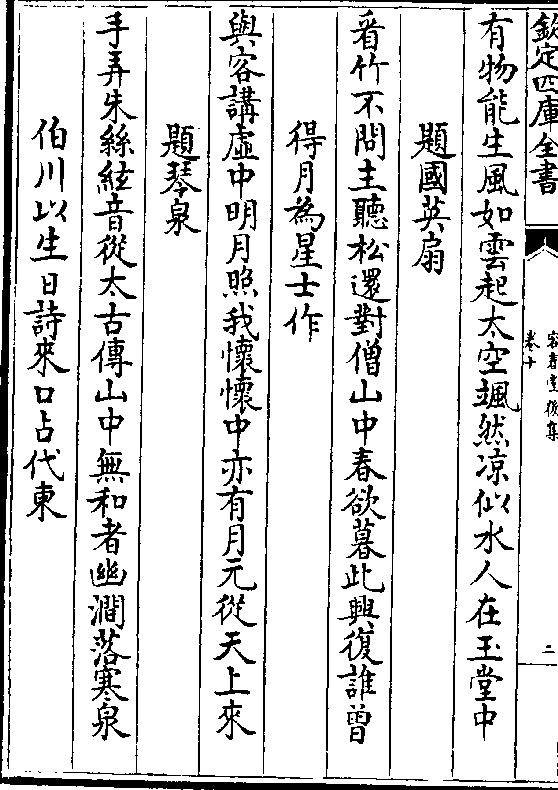 欽定四庫全書
容春堂後集
卷十
二
有物能生風如雲起太空颯然凉似水人在玉堂中
題國英扇
看竹不問主聽松還對僧山中春欲暮此興復誰曾
得月為星士作
與客講虛中明月照我懷懷中亦有月元從天上來
題琴泉
手弄朱絲絃音從太古傳山中無和者幽澗落寒泉
伯川以生日詩來口占代柬